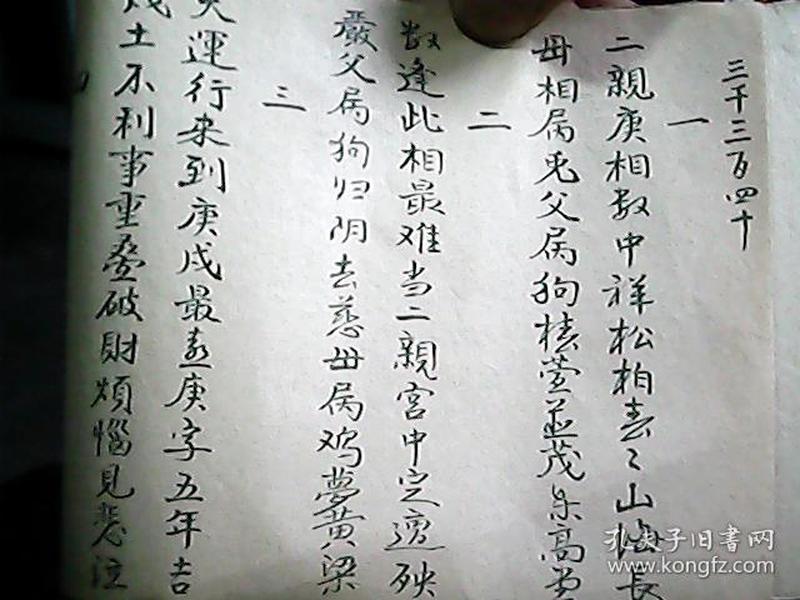 三千三百四十
一
二親庚相数中祥松柏春々山海長
母相属兎父属狗椿萱並茂乐高堂
二
数逢此相最难当二親宫中定遭殃
嚴父属狗归阴去慈母属鸡夢黄梁
三
运行来到庚戍最喜庚字五年吉
戍土不利事重叠破财煩惱見悲泣
孔夫子旧书网
www.kongfz.com